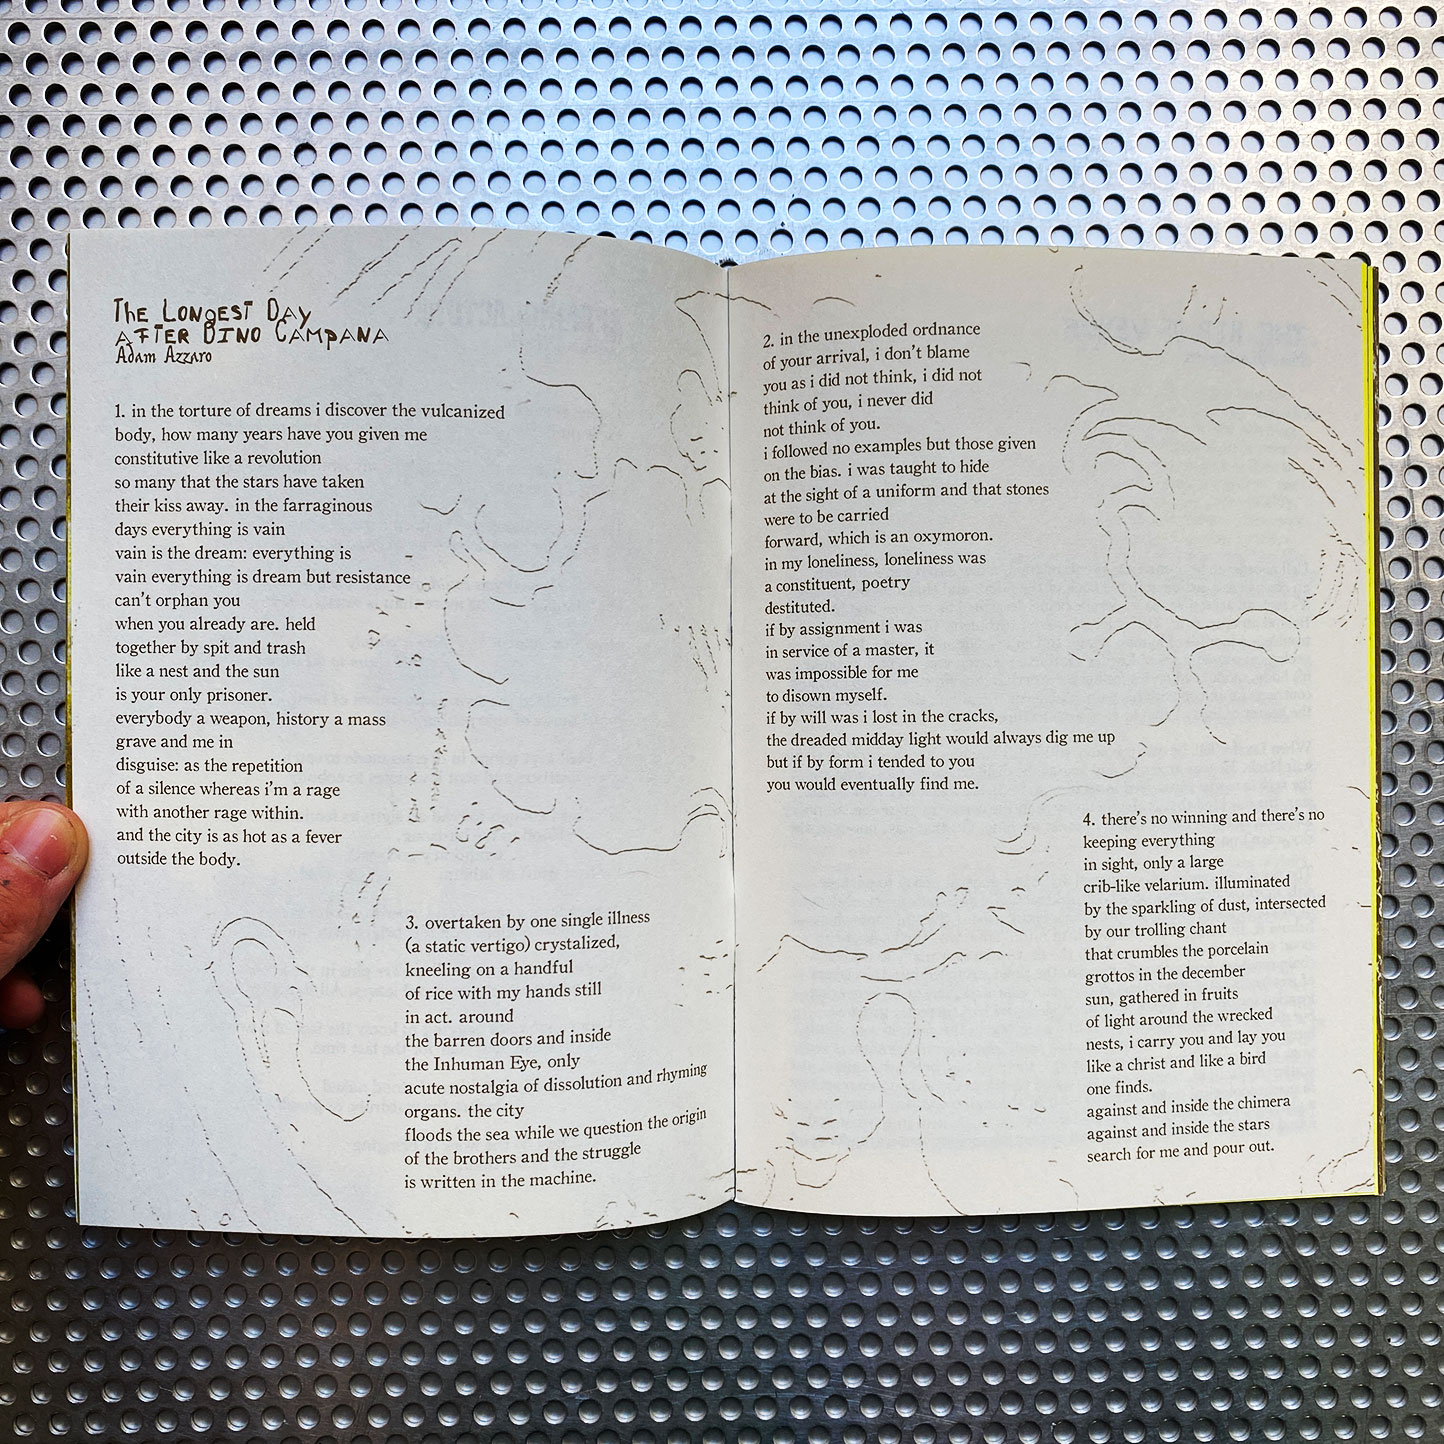 The Longest Day
After Dino Campana
Adam Azzaro
1. in the torture of dreams i discover the vulcanized
body, how many years have you given me
constitutive like a revolution
so many that the stars have taken
their kiss away. in the farraginous
days everything is vain
vain is the dream: everything is
vain everything is dream but resistance
can't orphan you
when you already are. held
together by spit and trash
like a nest and the sun
is your only prisoner.
everybody a weapon, history a mass
grave and me in
disguise: as the repetition
of a silence whereas i'm a rage
with another rage within.
and the city is as hot as a fever
outside the body.
2. in the unexploded ordnance
of your arrival, i don't blame
you as i did not think, i did not
think of you, i never did
not think of you.
i followed no examples but those given
on the bias. i was taught to hide
at the sight of a uniform and that stones
were to be carried
forward, which is an oxymoron.
in my loneliness, loneliness was
a constituent, poetry
destituted.
if by assignment i was
in service of a master, it
was impossible for me
to disown myself.
if by will was i lost in the cracks,
the dreaded midday light would always dig me up
but if by form i tended to you
you would eventually find me.
3. overtaken by one single illness
(a static vertigo) crystalized,
kneeling on a handful
of rice with my hands still
in act. around
the barren doors and inside
the Inhuman Eye, only
acute nostalgia of dissolution and rhyming
organs. the city
floods the sea while we question the origin
of the brothers and the struggle
is written in the machine.
4. there's no winning and there's no
keeping everything
in sight, only a large
crib-like velarium. illuminated
by the sparkling of dust, intersected
by our trolling chant
that crumbles the porcelain
grottos in the december
sun, gathered in fruits
of light around the wrecked
nests, i carry you and lay you
like a christ and like a bird
one finds.
against and inside the chimera
against and inside the stars
search for me and pour out.